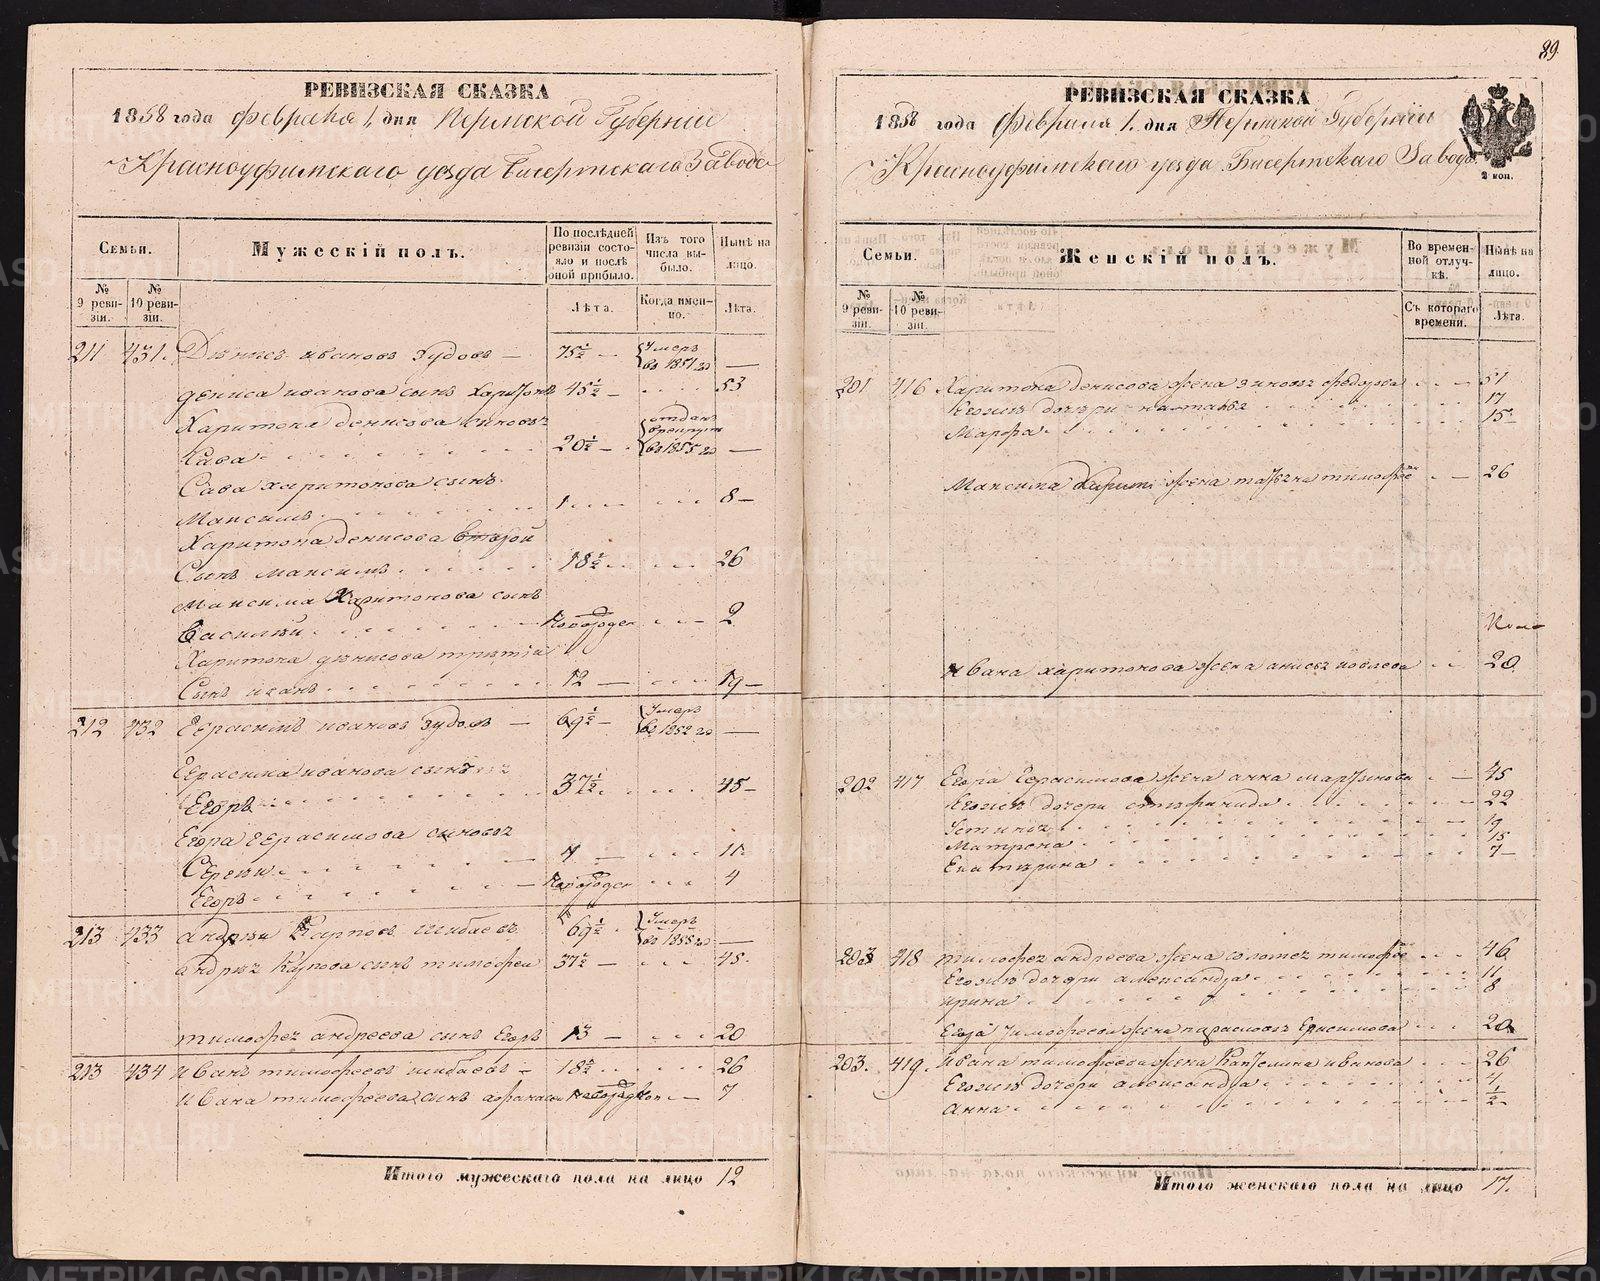 РЕВИЗСКАЯ СКАЗКА
1858 года Февраля 1. дня Пермской Губернии
Красноуфимскаго уезда Бисертскаго Завода
Семьи.
Мужескій полъ.
По послѣдней ревизіи состояло и послѣ оной прибыло.
Изъ того числа выбыло.
Нынѣ на лицо.
№ 9 ревизіи.
№ 10 ревизіи.
Лѣта.
Когда именно.
Лѣта.
211 431. Денисъ ивановъ Худовъ — 75½ — Умеръ во 1851 го —
дениса иванова сынъ Харитонъ 45½ — 53
Харитона денисова сыновья
Сава 20½ — отданъ врекруты во 1855 го —
Сава харитонова сынъ
Максимъ 1 8 —
Харитона денисова второй
Сынъ максимъ 18½ 26
Максима Харитонова сынъ
Василий новорожден 2
Харитона денисова третий
Сынъ иванъ 12 — 19 —
212 432 Герасимъ ивановъ Худовъ — 69½ — Умеръ во 1852 го —
Герасима иванова сынъ
Егоръ 37½ 45 —
Егора Герасимова сыновья
Сергей 7 — 15
Егоръ — новорожден 4
213 433 андрей Карповъ шибаевъ 69½ Умеръ во 1855 го —
андрея Карпова сынъ тимофей 37½ — 45
тимофея андреева сынъ Егоръ 13 — 20
213 434 иванъ тимофеевъ шибаевъ — 18½ 26
ивана тимофеева сынъ афанасий новорожден — 7
Итого мужескаго пола на лицо 12
89
РЕВИЗСКАЯ СКАЗКА
1858 года Февраля 1. дня Пермской Губернии
Красноуфимскаго уезда Бисертскаго Завода
2 коп.
Семьи.
Женскій полъ.
Во временной отлучкѣ.
Нынѣ на лицо.
№ 9 ревизіи.
№ 10 ревизіи.
Съ котораго времени.
Лѣта.
201 416 Харитона денисова жена зиновья федорова — 51
Егожъ дочери наталья 17
Марфа 15
Максима Харит жена татьяна тимофее — 26
ивана харитонова жена анисья 20
202 417 Егора Герасимова жена анна мартынова — 45
Егожъ дочери стефанида 22
Устинья 19
Матрена 15
Екатерина 7 —
203 418 тимофея андреева жена тимофее 46
Егожъ дочери александра 11
ирина 8
Егора Тимофеева жена парасковья Герасимова 20
203. 419. ивана тимофеева жена Катерина иванова 26
Егожъ дочери александра 4
анна ½
Итого женскаго пола на лицо 17.
METRIKI.GASO-URAL.RU